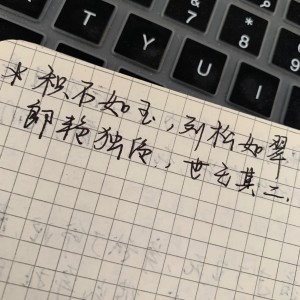 & 7
* 8
9
T Y U I
*积石如玉,列松如翠
郎艳独绝,世无其二.